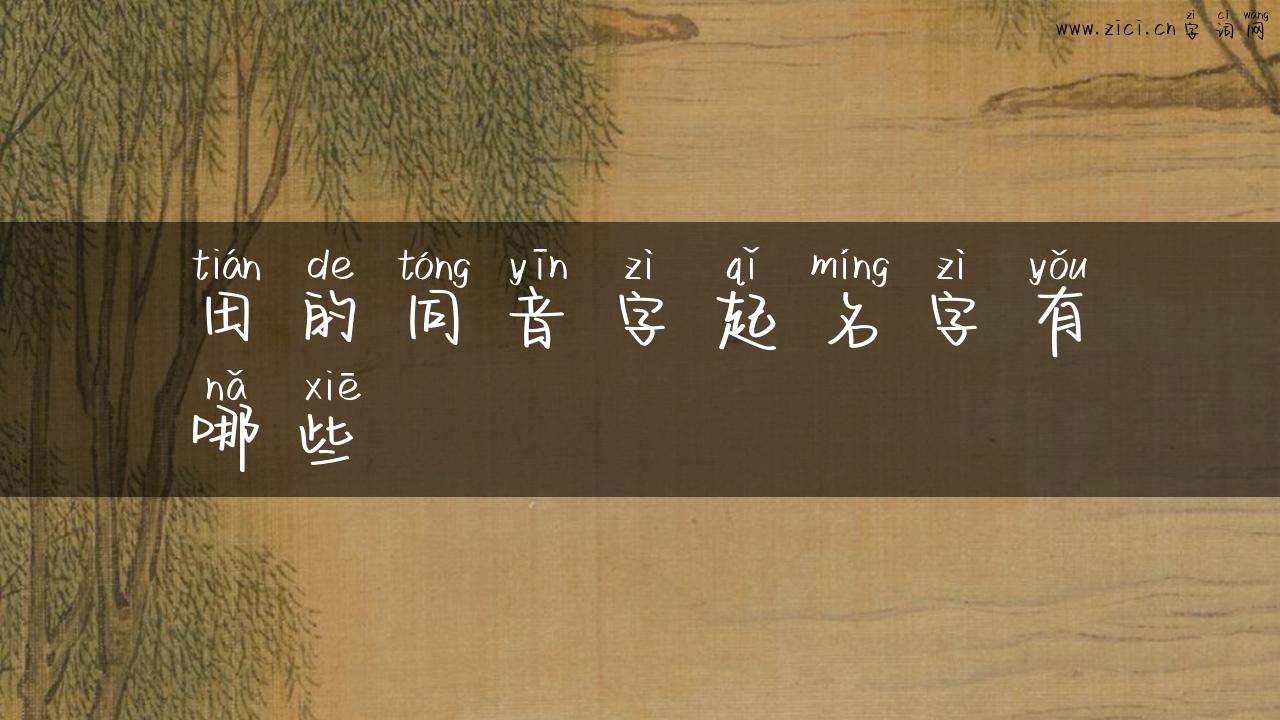 zì cí wǎng
www.zici.cn字词网
tián de tóng yīn zì qǐ míng zì yǒu
田的同音字起名字有
nǎ xiē
哪些